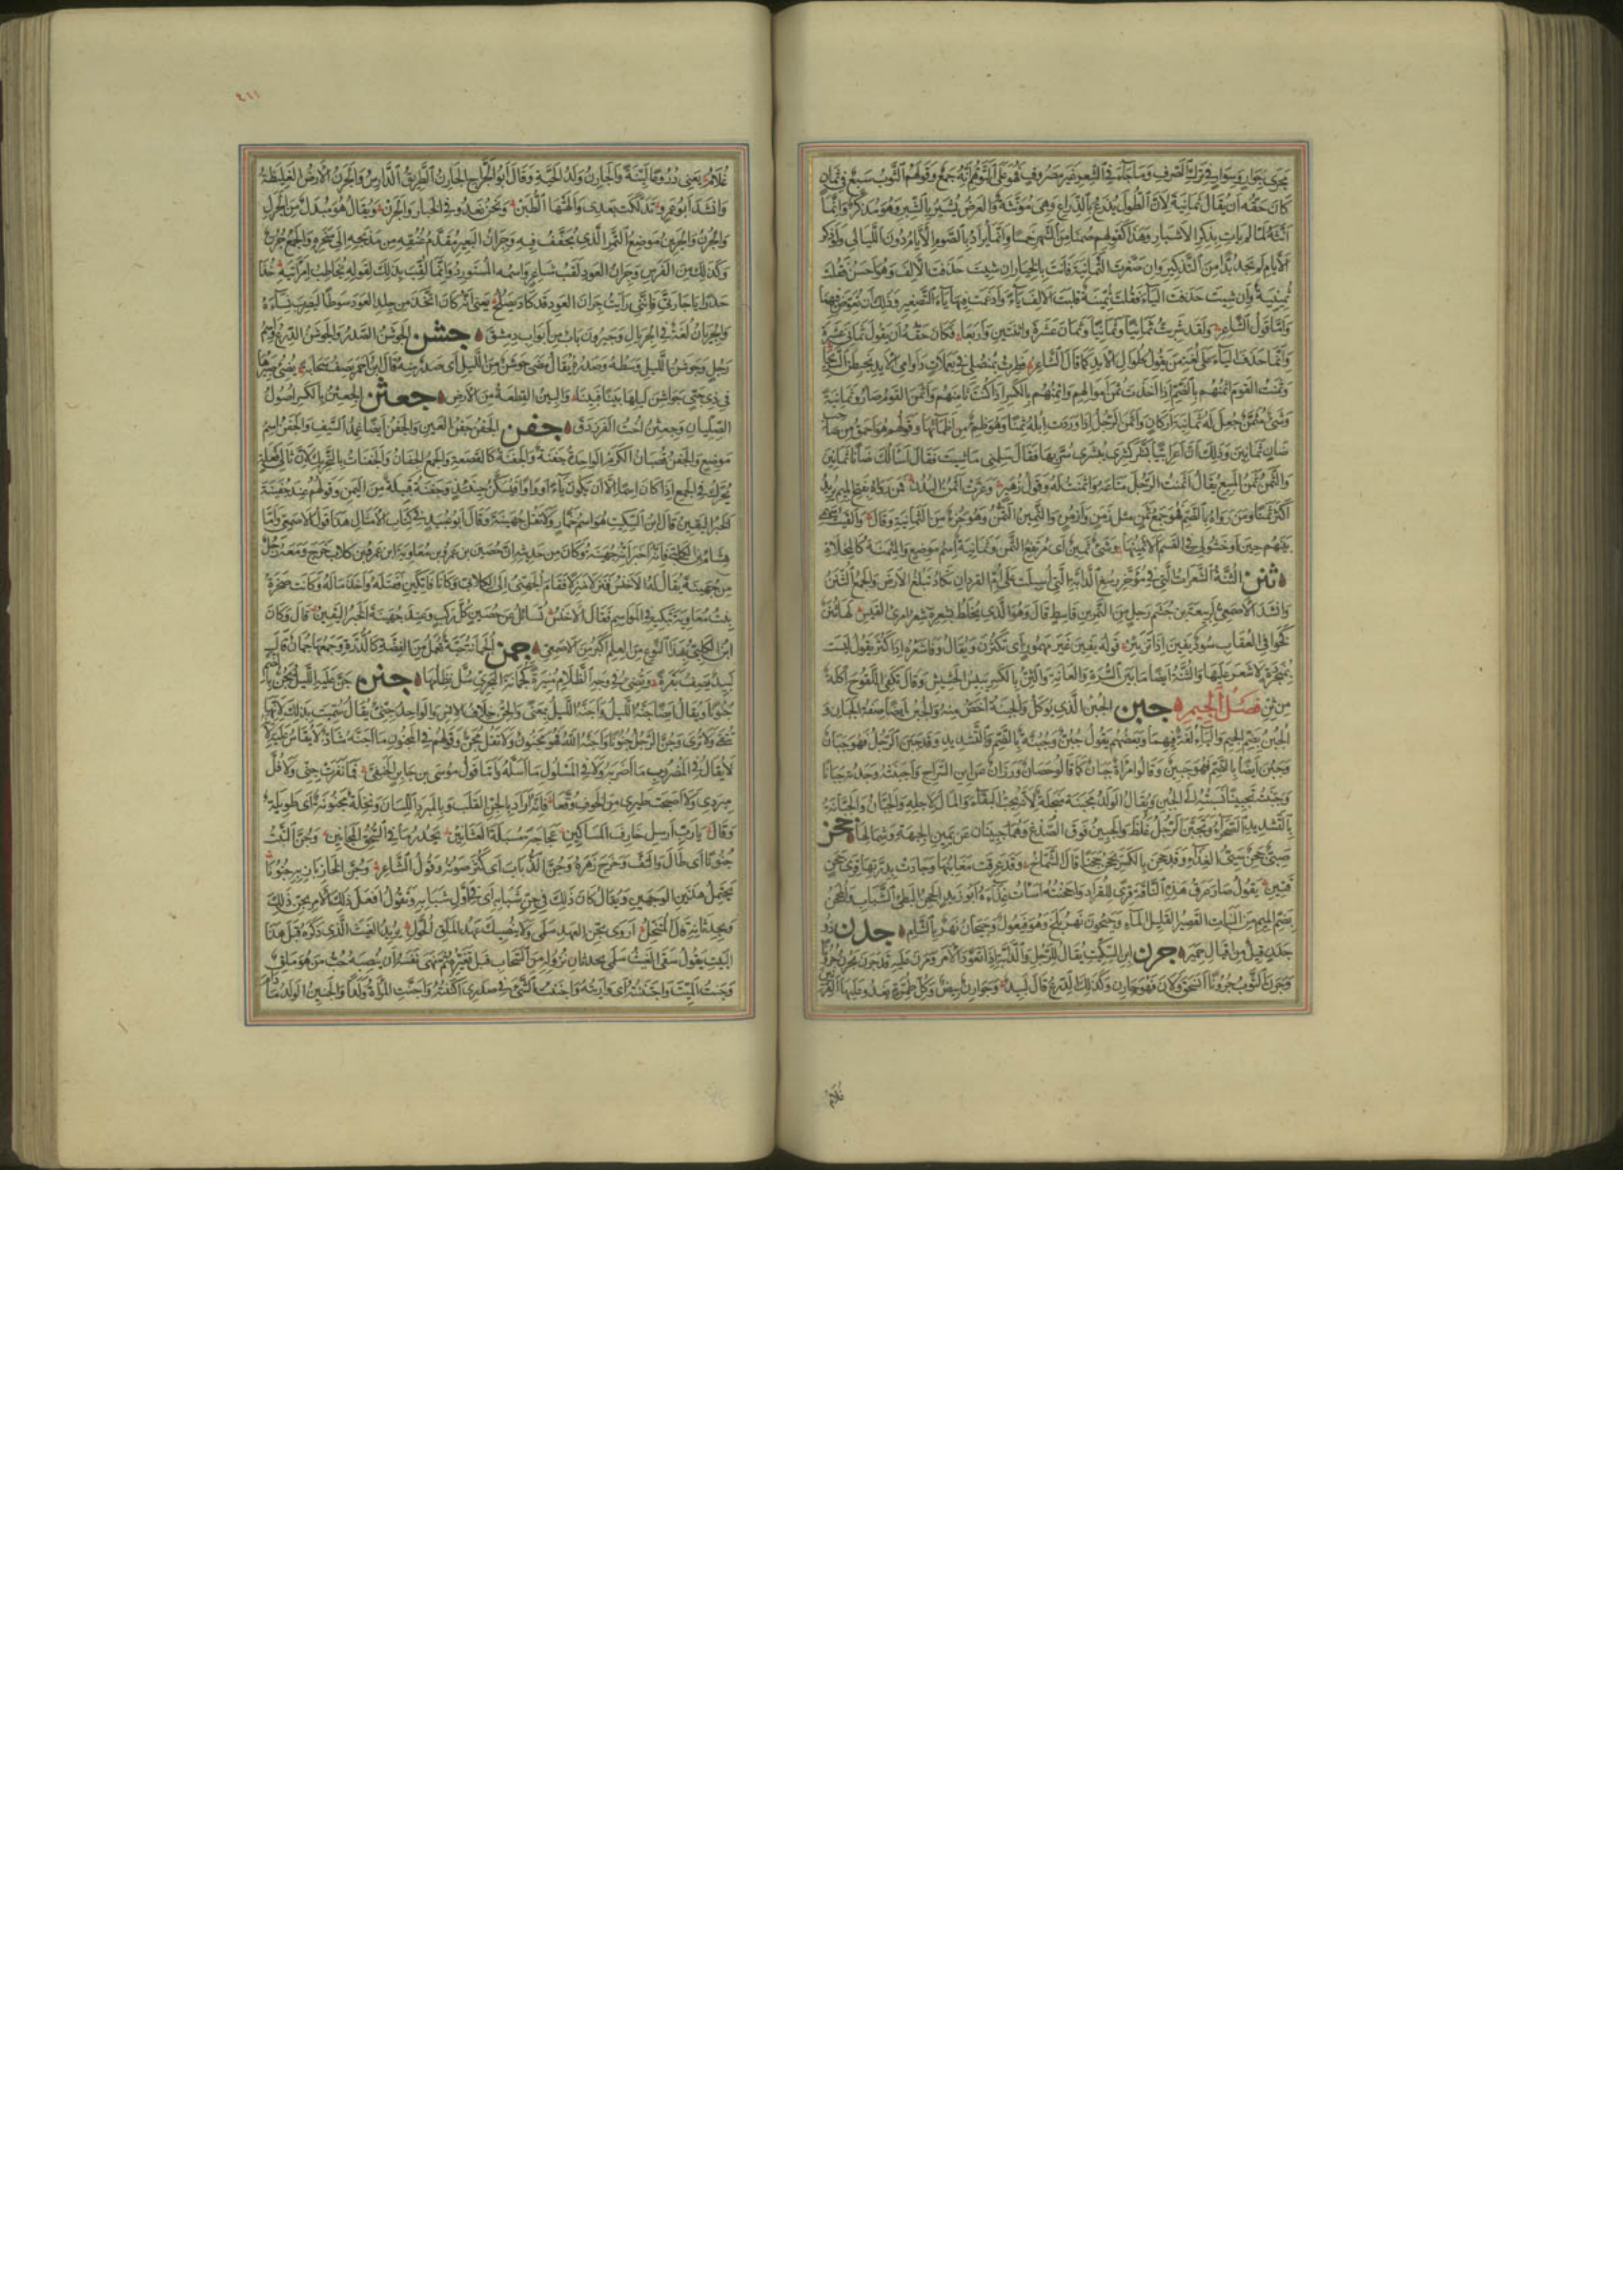 يجرى مجرى جوار وسوار فى ترك الصرف وما جاء فى الشعر غير مصروف فهو على التوهم انه جمع وقولهم الثوب سبع فى ثمان
كان حقه ان يقال ثمانية لان الطول يذرع بالذراع وهى مؤنثة والعرض يشبر بالشبر وهو مذكر وانما
انثه لما لم يأت بذكر الاشبار وهذا كقولهم صمنا من الشهر خمسا وانما يراد بالصوم الايام دون الليالى ولو ذكر
الايام لم تجد بدا من التذكير وان صغرت الثمانية فانت بالخيار ان شئت حذفت الالف وهو احسن فقلت
ثمينية وان شئت حذفت الياء فقلت ثمينة قلبت الالف ياء وادغمت فيها ياء التصغير ولك ان تعوض فيهما
واما قول الشاعر ولقد شربت ثمانيا وثمانيا وثمان عشرة واثنتين واربعا فكان حقه ان يقول ثمانى عشرة
وانما حذف الياء على لغة من يقول طوال الايد كما قال الشاعر فطرت بمنصلى فى يعملات دوامى الايد يخبطن السريحا
وثمنت القوم اثمنهم بالضم اذا اخذت ثمن اموالهم واثمنهم بالكسر اذا كنت ثامنهم واثمن القوم صاروا ثمانية
وشئ مثمن جعل له ثمانية اركان واثمن الرجل اذا وردت ابله ثمنا وهو ظمء من اظمائها وقولهم هو احمق من صاحب
ضان ثمانين وذلك ان اعرابيا بشر كسرى ببشرى سر بها فقال سلنى ما شئت فقال اسالك ضانا ثمانين
والثمن ثمن المبيع يقال اثمنت الرجل متاعه واثمنت له وقول زهير وعزت اثمن البدن فمن رواه بفتح الميم يريد
اكثرها ثمنا ومن رواه بالضم فهو جمع ثمن مثل زمن وازمن والثمين الثمن وهو جزء من الثمانية وقال والقيت سهمى
بينهم حين اوخشوا فى القسم الا ثمينها وشئ ثمين اى مرتفع الثمن وثمانية اسم موضع والمثمنة كالمخلاة
ثنن الثنة الشعرات التى فى مؤخر رسغ الدابة التى اسبلت على ام القردان تكاد تبلغ الارض والجمع الثنن
وانشد الاصمعى لربيعة بن جشم رجل من النمر بن قاسط قال وهو الذى يخلط بشعره شعر امرئ القيس لها ثنن
كخوافى العقاب سود يفين اذا تزبئر قوله يفين غير مهموز اى تكثرن ويقال وفا شعره اذا كثر يقول ليست
بمنجردة لا شعر عليها والثنة ايضا ما بين السرة والعانة والثن بالكسر يبيس الحشيش وقال تكفى اللقوح اكلة
من ثن فصل الجيم جبن الجبن الذى يؤكل والجبنة اخص منه والجبن ايضا صفة الجبان و
الجبن بضم الجيم والباء لغة فيهما وبعضهم يقول جبن وجبنة بالضم والتشديد وقد جبن الرجل فهو جبان
وجبن ايضا بالضم فهو جبين وقالوا امراة جبان كما قالوا حصان ورزان عن ابن السراج واجبنته وجدته جبانا
وجبنته تجبينا نسبته الى الجبن ويقال الولد مجبنة مبخلة لانه يحب البقاء والمال لاجله والجبان والجبانة
بالتشديد الصحراء وتجبن الرجل غلظ والجبين فوق الصدغ وهما جبينان عن يمين الجبهة وشمالها جحن
صبى جحن سيئ الغذاء وقد جحن بالكسر يجحن جحنا قال الشماخ وقد عرقت مغابنها وجادت بدرتها قرى جحن
قتين يقول صار عرق هذه الناقة قرى للقراد واجحنته اسات غذاءه ابو زيد الجحن البطئ الشباب والمجحن
بضم الميم من النبات القصير القليل الماء وجيحون نهر بلخ وهو فيعول وجيحان نهر بالشام جدن ذو
جدن قيل من اقيال حمير جرن ابن السكيت يقال للرجل والدابة اذا تعود الامر ومرن عليه قد جرن يجرن جرونا
وجرن الثوب جرونا انسحق ولان فهو جارن وكذلك الدرع قال لبيد وجوارن بيض وكل طمرة يعدو عليها القرتين
غلام
٤١١
غلام يعنى دروعا لينة والجارن ولد الحية وقال ابو الجراح الجارن الطريق الدارس والجرن الارض الغليظة
وانشد ابو عمرو تدكلت بعدى والهتها الطبن ونحن نعدو فى الخبار والجرن ويقال هو مبدل من الجرل
والجرن والجرين موضع التمر الذى يجفف فيه وجران البعير مقدم عنقه من مذبحه الى منحره والجمع جرن
وكذلك من الفرس وجران العود لقب شاعر واسمه المستورد وانما لقب بذلك لقوله يخاطب امراتيه خذا
حذرا يا جارتى فاننى رايت جران العود قد كاد يصلح يعنى انه كان اتخذ من جلد العود سوطا ليضرب به نساءه
والجريان لغة فى الجريال وجيرون باب من ابواب دمشق جشن الجوشن الصدر والجوشن الدرع واسم
رجل وجوشن الليل وسطه وصدره يقال مضى جوشن من الليل اى صدر منه قال ابن احمر يصف سحابة يضئ صبيرها
فى ذى حبى جواشن ليلها بينا فبينا والبين القطعة من الارض جعثن الجعثن بالكسر اصول
الصليان وجعثن اخت الفرزدق جفن الجفن جفن العين والجفن ايضا غمد السيف والجفن اسم
موضع والجفن قضبان الكرم الواحدة جفنة والجفنة كالقصعة والجمع الجفان والجفنات بالتحريك لان ثانى فعلة
يحرك فى الجمع اذا كان اسما الا ان يكون ياء او واوا فيسكن حينئذ وجفنة قبيلة من اليمن وقولهم عند جفينة
الخبر اليقين قال ابن السكيت هو اسم خمار ولا تقل جهينة وقال ابو عبيد فى كتاب الامثال هذا قول الاصمعى واما
هشام بن الكلبى فانه اخبر انه جهينة وكان من حديثه ان حصين بن عمرو بن معاوية ابن عمرو بن كلاب خرج ومعه رجل
من جهينة يقال له الاخنس فنزلا منزلا فقام الجهنى الى الكلابى وكانا فاتكين فقتله واخذ ماله وكانت صخرة
بنت معاوية تبكيه فى المواسم فقال الاخنس تسائل عن حصين كل ركب وعند جهينة الخبر اليقين قال وكان
ابن الكلبى بهذا النوع من العلم اكبر من الاصمعى جمن الجمانة حبة تعمل من الفضة كالدرة وجمعها جمان قال
لبيد يصف بقرة وتضئ فى وجه الظلام منيرة كجمانة البحرى سل نظامها جنن جن عليه الليل يجن بالضم
جنونا ويقال ايضا جنه الليل واجنه الليل بمعنى والجن خلاف الانس والواحد جنى يقال سميت بذلك لانها
تتقى ولا ترى وجن الرجل جنونا واجنه الله فهو مجنون ولا تقل مجن وقولهم فى المجنون ما اجنه شاذ لا يقاس عليه لانه
لا يقال فى المضروب ما اضربه ولا فى المسلول ما اسله واما قول موسى بن جابر الحنفى فما نفرت جنى ولا فل
مبردى ولا اصبحت طيرى من الخوف وقعا فانه اراد بالجن القلب وبالمبرد اللسان ونخلة مجنونة اى طويلة
وقال يا رب ارسل خارف المساكين عجاجة مسبلة العثانين تحدر ما فى السحق المجانين وجن النبت
جنونا اى طال والتف وخرج زهره وجن الذباب اى كثر صوته وقول الشاعر وجن الخازباز به جنونا
يحتمل هذين الوجهين ويقال كان ذلك فى جن شبابه اى فى اول شبابه وتقول افعل ذلك الامر بجن ذلك
وبحدثانه قال المتنخل اروى بجن العهد سلمى ولا ينصبك عهد الملق الحول يريد الغيث الذى ذكره قبل هذا
البيت يقول سقى الغيث سلمى بحدثان نزوله من السحاب قبل تغيره ثم نهى نفسه ان ينصبه حب من هو ملق
وجننت الميت واجننته اى واريته واجننت الشئ فى صدرى اكننته واجنت المراة ولدا والجنين الولد ما دام